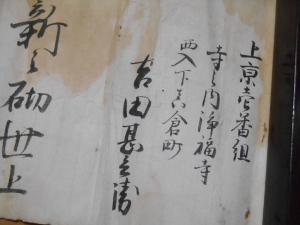 上京壱番組
寺之内浄福寺
西入下石倉町
吉田甚兵衛
新之砌世上